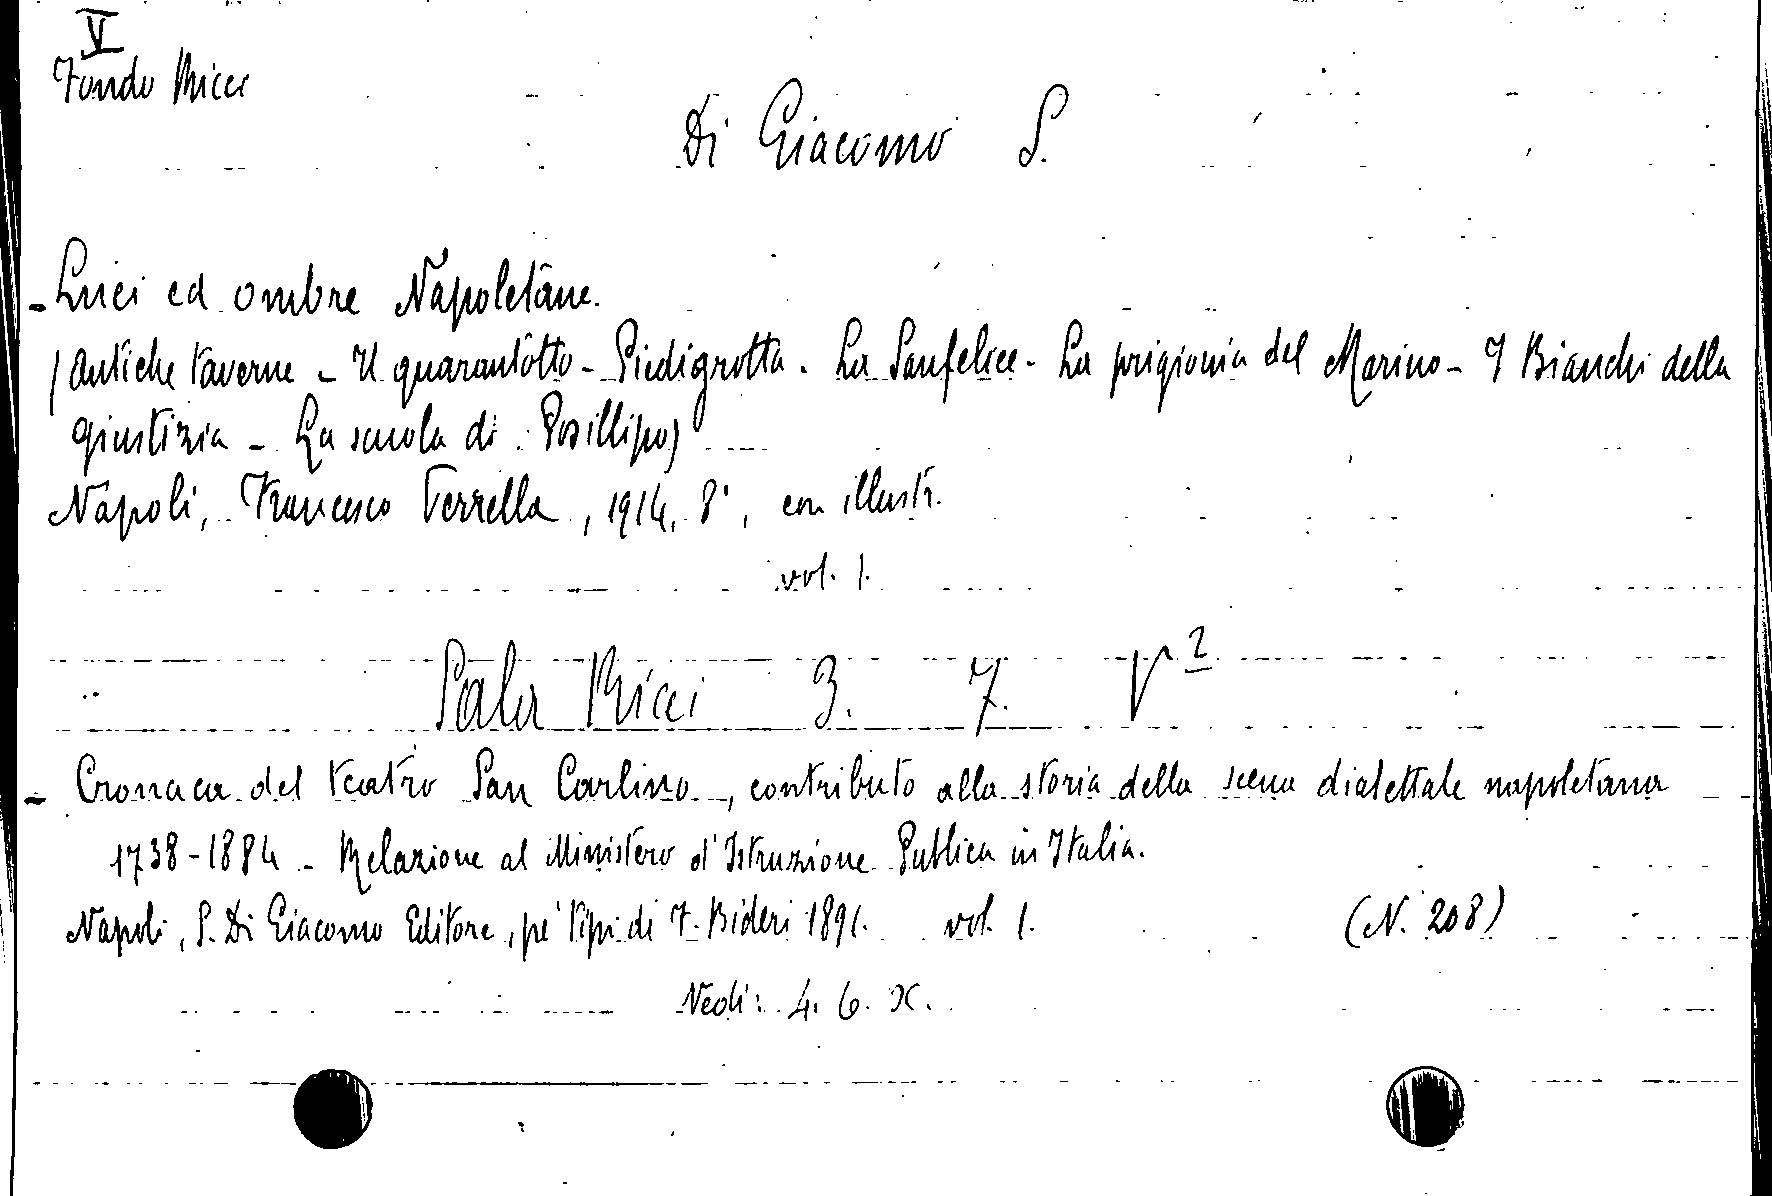 V
Fondo Ricci
Di Giacomo S.
- Luci ed ombre Napoletane.
(Antiche taverne - Il quarantotto - Piedigrotta - La Sanfelice - La prigionia del Marino - I Bianchi della
giustizia - La scuola di Posillipo)
Napoli, Francesco Perrella, 1914, 8°, con illustr.
vol. 1.
Sala Ricci 3. 7. V²
- Cronaca del teatro San Carlino, contributo alla storia della scena dialettale napoletana
1738-1884 - Relazione al Ministero d'Istruzione Publica in Italia.
Napoli, S. Di Giacomo Editore, pe' tipi di F. Bideri 1891. vol. 1. (N. 208)
Vedi: 4. 6. X.